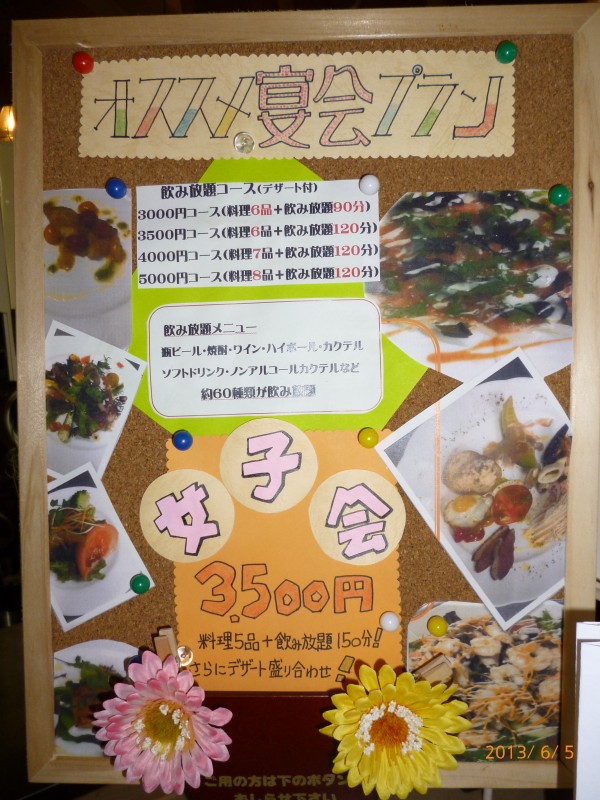 オススメ宴会プラン
飲み放題コース(デザート付)
3000円コース(料理6品+飲み放題90分)
3500円コース(料理6品+飲み放題120分)
4000円コース(料理7品+飲み放題120分)
5000円コース(料理8品+飲み放題120分)
飲み放題メニュー
瓶ビール・焼酎・ワイン・ハイボール・カクテル
ソフトドリンク・ノンアルコールカクテルなど
約60種類が飲み放題
女子会
3,500円
料理5品+飲み放題150分!
さらにデザート盛り合わせ!
2013/ 6/ 5
ご用の方は下のボタン
おしらせ下さい